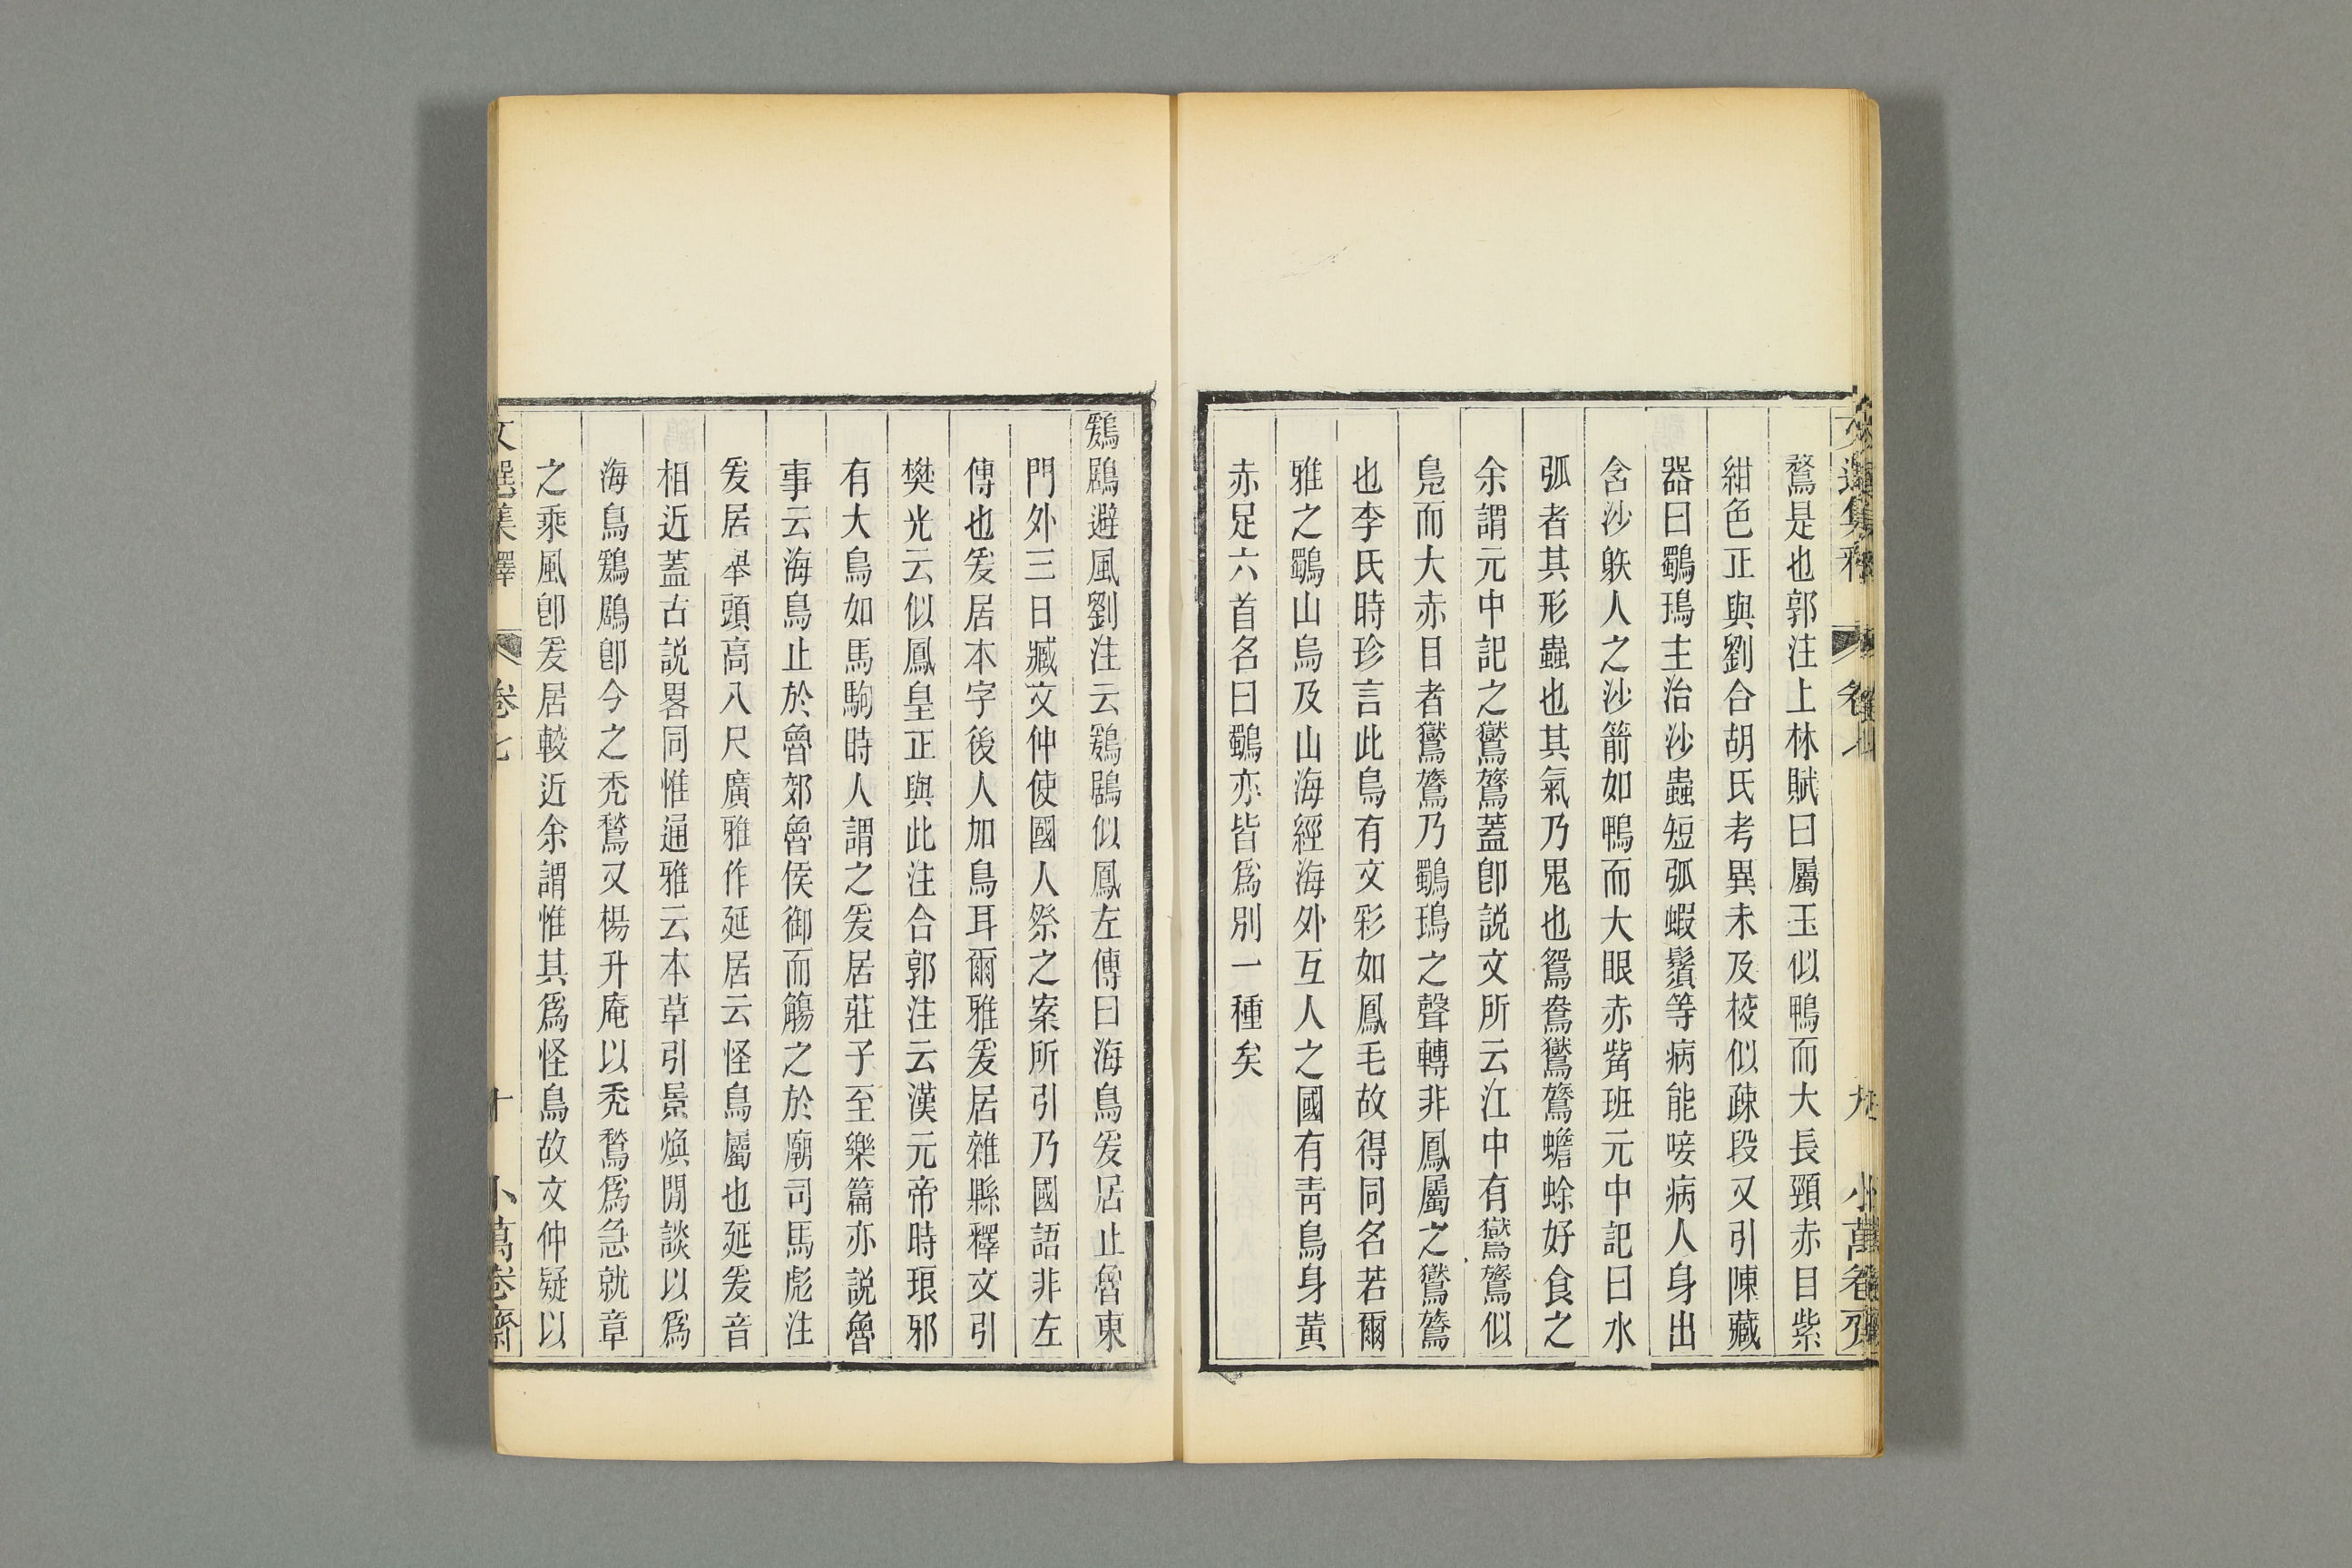 鶩是也郭注上林賦曰屬玉似鴨而大長頸赤目紫
紺色正與劉合胡氏考異未及梭似疎段又引陳藏
器曰鸀鳿主治沙蝨短弧蝦鬚等病能唼病人身出
含沙躲人之沙箭如鴨而大眼赤觜班元中記曰水
弧者其形蟲也其氣乃鬼也鴛鴦鸑鷟蟾蜍好食之
余謂元中記之鸑鷟蓋卽說文所云江中有鸑鷟似
鳧而大赤目者鸑鷟乃鸀鳿之聲轉非鳳屬之鸑鷟
也李氏時珍言此鳥有文彩如鳳毛故得同名若爾
雅之鸀山烏及山海經海外互人之國有靑鳥身黃
赤足六首名曰鸀亦皆爲別一種矣
鶢鶋避風劉注云鶢鶋似鳳左傳曰海鳥爰居止魯東
門外三日臧文仲使國人祭之案所引乃國語非左
傳也爰居本字後人加鳥耳爾雅爰居雜縣釋文引
樊光云似鳳皇正與此注合郭注云漢元帝時琅邪
有大鳥如馬駒時人謂之爰居莊子至樂篇亦說魯
事云海鳥止於魯郊魯侯御而觴之於廟司馬彪注
爰居舉頭高八尺廣雅作延居云怪鳥屬也延爰音
相近蓋古說畧同惟通雅云本草引景煥閒談以爲
海鳥鶢鶋卽今之禿鶖又楊升庵以禿鶖爲急就章
之乘風卽爰居較近余謂惟其爲怪鳥故文仲疑以
文選集釋 卷七 十 小萬卷齋